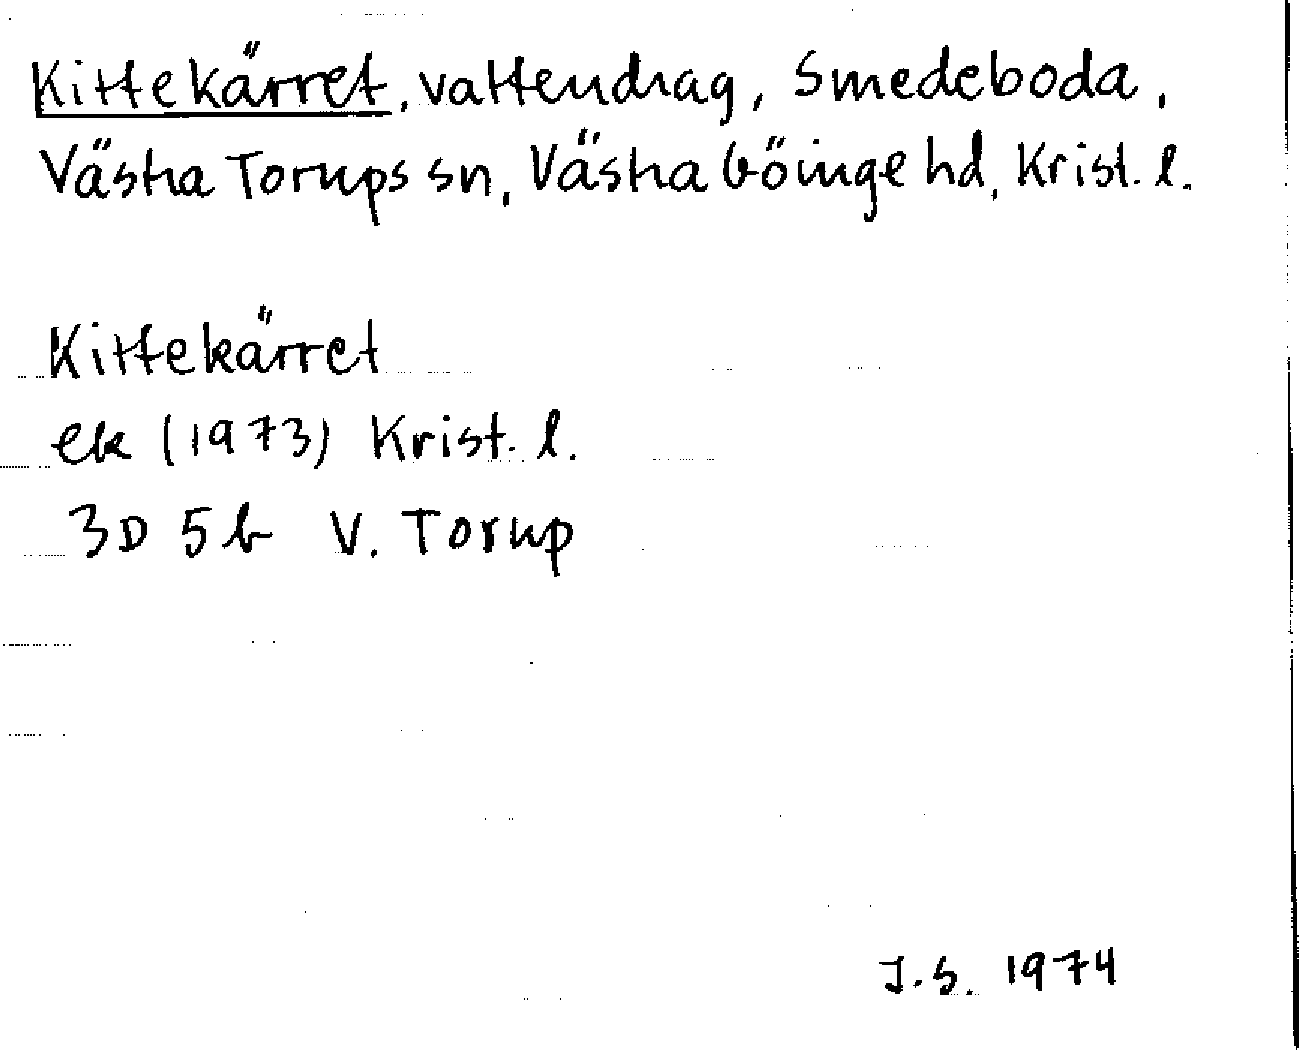 Kittekärret, vattendrag, Smedeboda,
Västra Torups sn, Västra Göinge hd, Krist. l.
Kittekärret
ek (1973) Krist. l.
3D 5b V. Torup
J.S. 1974